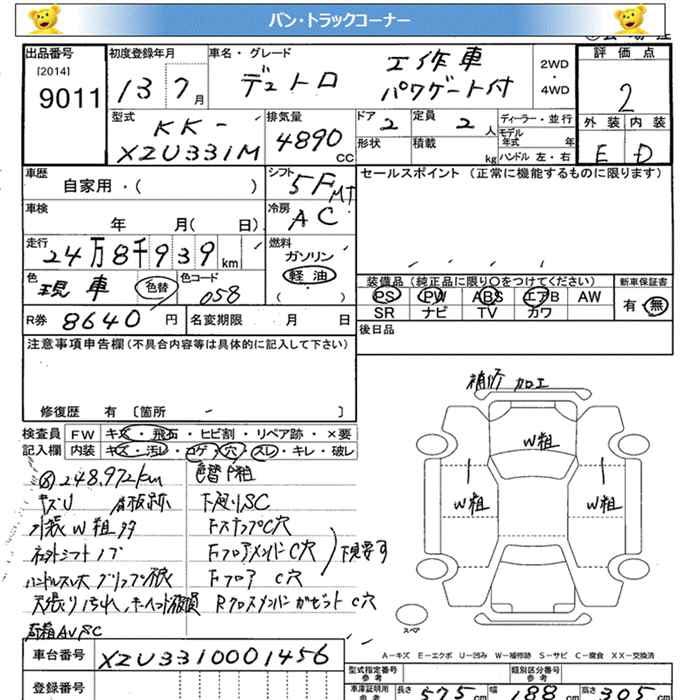 バン・トラックコーナー
出品番号 初度登録年月 車名・グレード 評価点
[2014]
9011 13 7月 デュトロ 工作車 パワゲート付 2WD・4WD 2
型式 KK-XZU331M 排気量 4890 CC ドア 2 定員 2人 ディーラー・並行 外装 内装
形状 積載 kg モデル年式 年 ハンドル 左・右 E D
車歴 自家用・( ) シフト 5F MT セールスポイント (正常に機能するものに限ります)
車検 年 月( 日) 冷房 AC
走行 24万8千939km 燃料 ガソリン
色 現車 色替 色コード 058 軽油 ( ・ )
装備品 (純正品に限り○をつけてください) 新車保証書
PS PW ABS エアB AW 有・無
SR ナビ TV カワ
R券 8640円 名変期限 月 日 後日品
注意事項申告欄 (不具合内容等は具体的に記入して下さい)
修復歴 有 [箇所 - ]
補修 加工
検査員 FW キズ・飛石・ヒビ割・リペア跡・×要
記入欄 内装 キズ・汚レ・コゲ・穴・スレ・キレ・破レ
248,972km 色替 P粗
キズU 下廻りSC
W粗 Fステップ C穴
シフトノブ Fフロアメンバ C穴 下見要す
Fフロア C穴
天張り汚れ Rクロスメンバ ガゼット C穴
AV SC
W粗
W粗 W粗
スペア
A-キズ E-エクボ U-凹み W-補修跡 S-サビ C-腐食 XX-交換済
車台番号 XZU3310001456
型式指定番号 参考 類別区分番号 参考
登録番号 車庫証明用 参考 長さ 575cm 幅 188cm 高さ 305cm